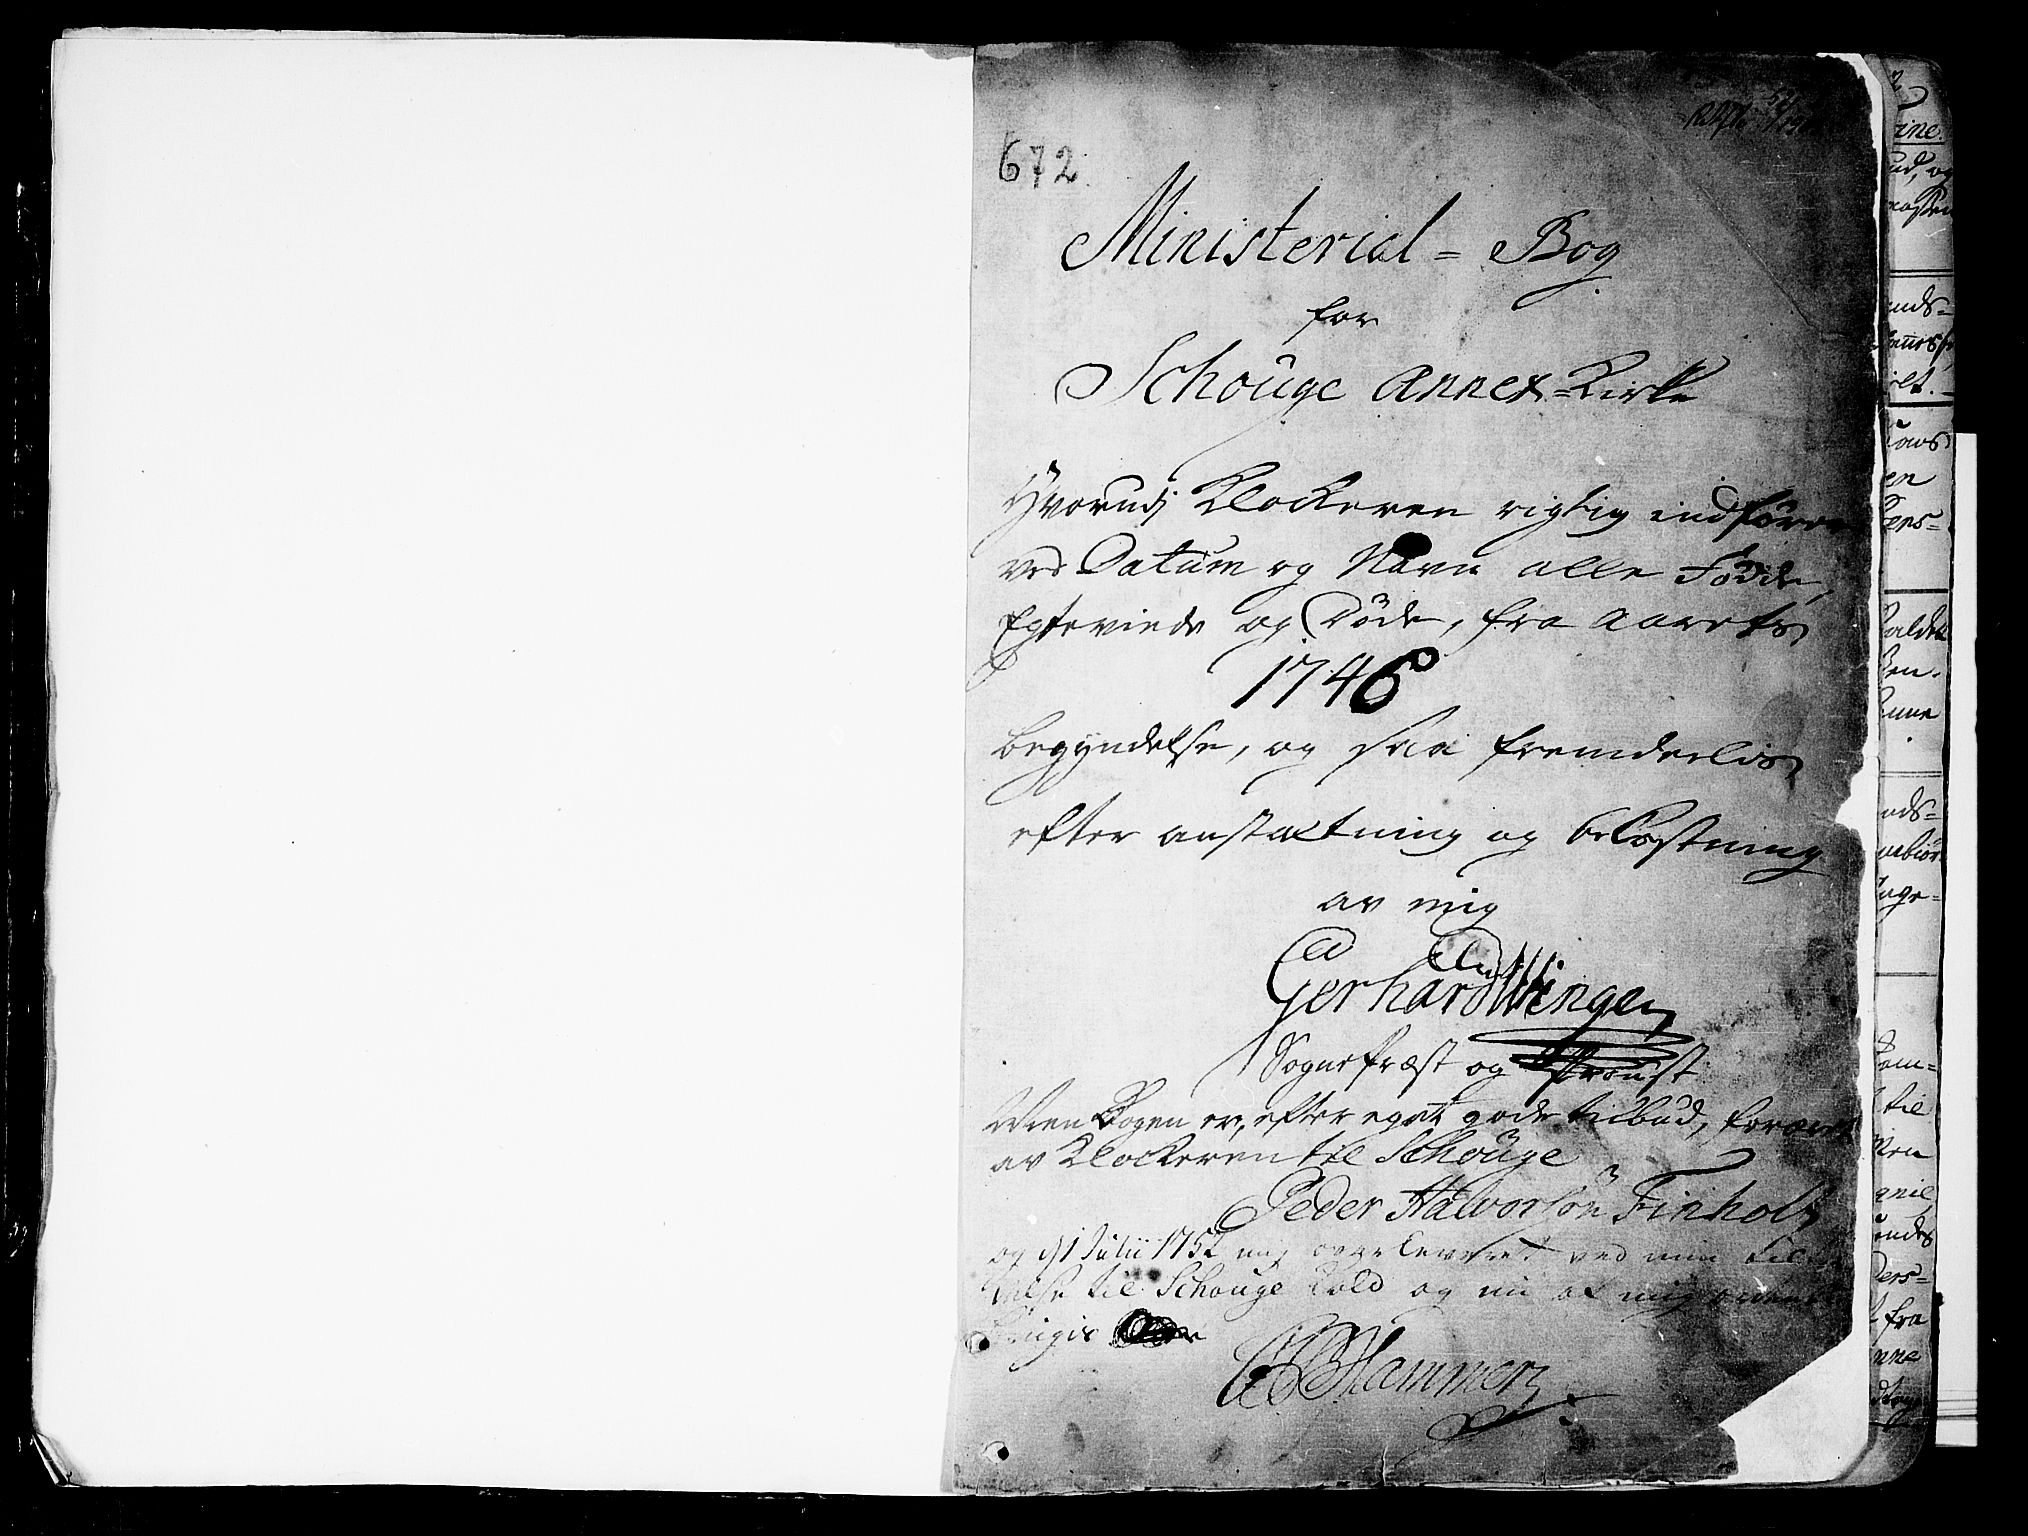 672
Ministerial = Bog
for
Schouge Annex = Kirke
Hvorudj Klockeren rigtig indfører
ved Datum og Navn alle Fødde,
Egteviede og Døde, fra Aarets
1746
begyndelse, og saa fremdeelis,
efter anstaltning og bekostning
av mig
Gerhard Wingen
Sognepræst og Proust
Men Bogen er, efter eget gode tilbud, foræret
av Klockeren til Schouge
Peder Halvorsön Finholt
og 1 Julii 1752 mig overleveret ved min
til Schouge Kald og nu af mig
CB Hammer